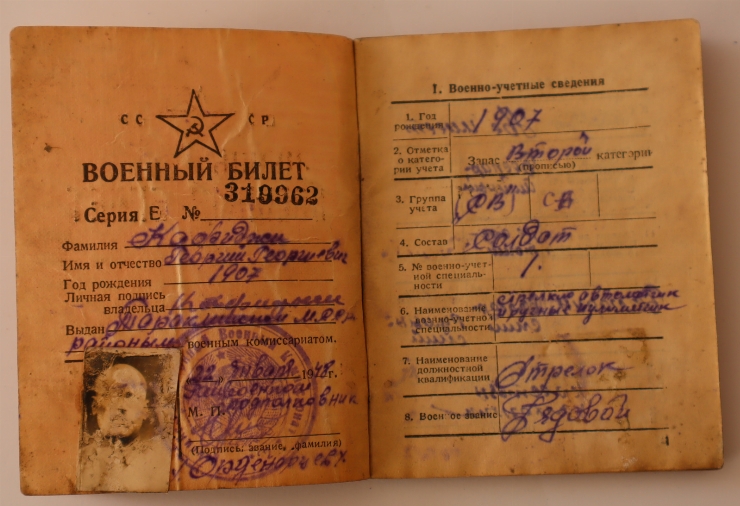 СС СР
ВОЕННЫЙ БИЛЕТ
319962
Серия Е №
Фамилия
Имя и отчество Георгий Георгиевич
Год рождения 1907
Личная подпись
владельца
Выдан Тараклийский МССР
районным военным комиссариатом.
22 января 1948 г.
М. П. Подполковник
(Подпись, звание, фамилия)
I. Военно-учетные сведения
1. Год рождения 1907
2. Отметка о категории учета Запас Второй категории
(прописью)
3. Группа учета СВ
4. Состав Солдат
5. № военно-учетной специальности 1.
6. Наименование военно-учетной специальности
7. Наименование должностной квалификации Стрелок
8. Военное звание Рядовой